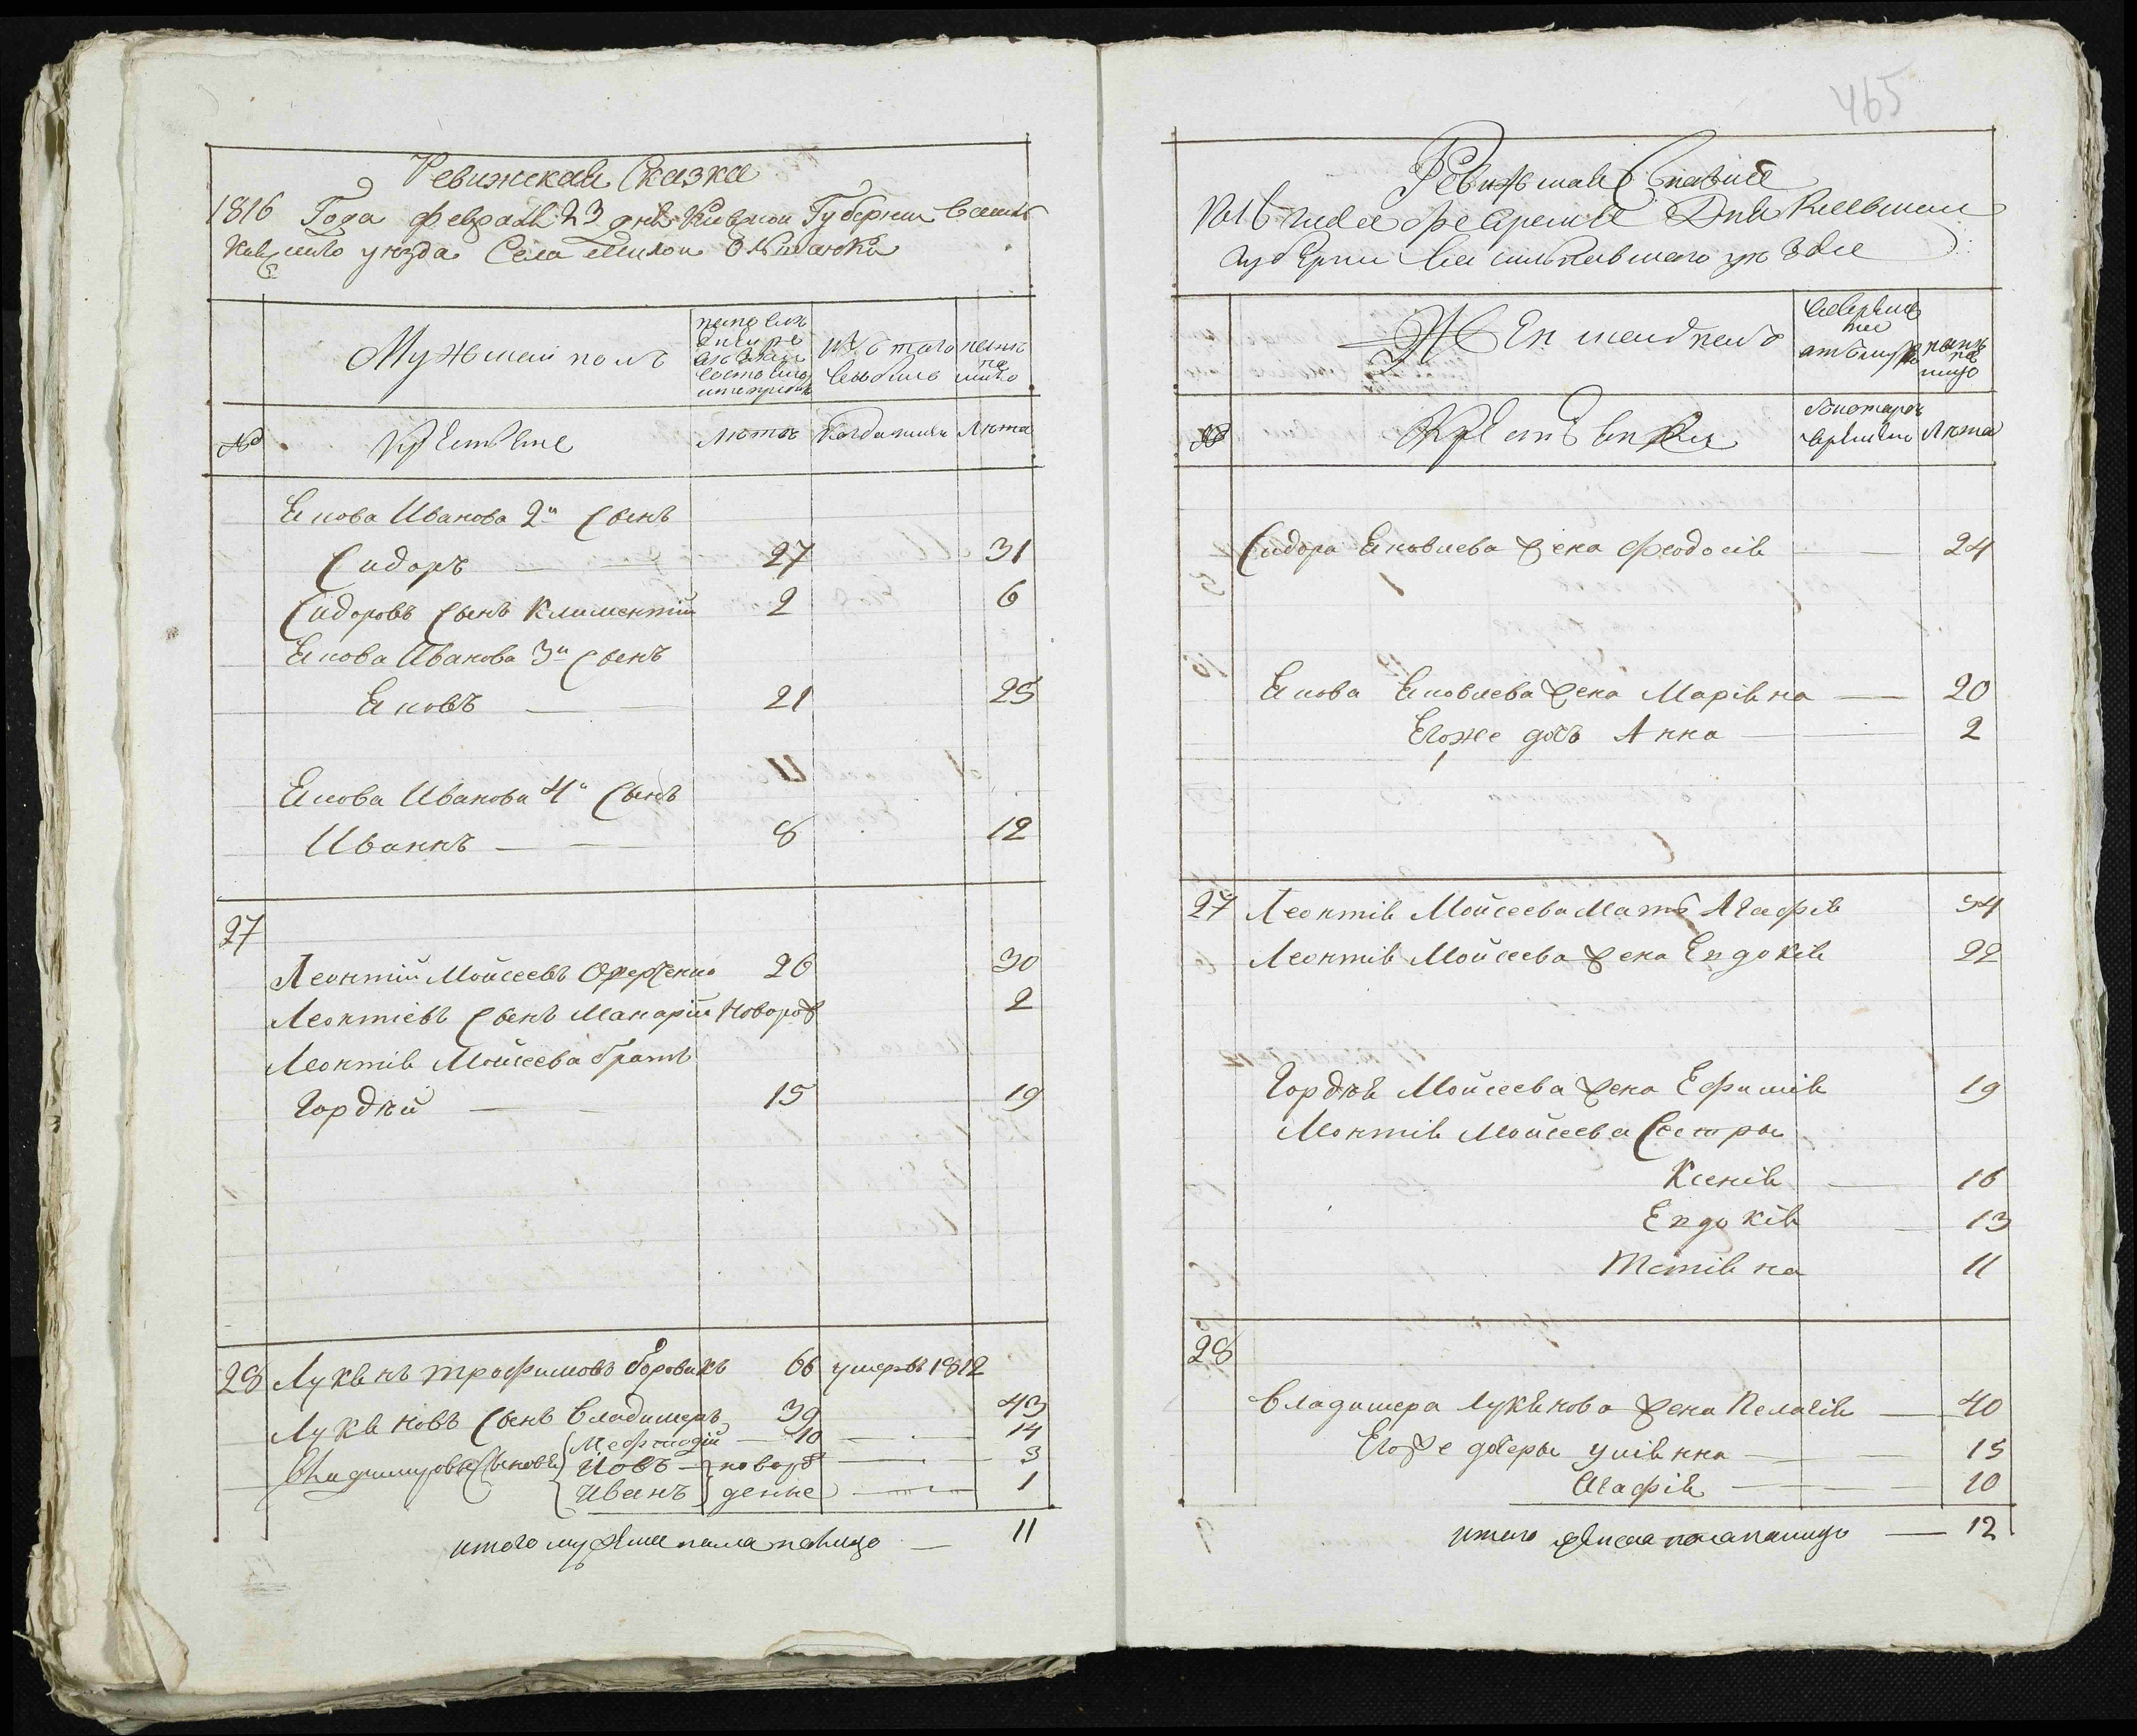 465
Ревижская Сказка
1816 Года февраля 23 дня Киевской Губернии Василь
ковского уезда Села Милой Ольшанки
Мужеской полъ
Изъ того выбыло
ныне на лицо
№
Крестьяне
Лѣта
Когда именно
Лѣта
Якова Иванова 2й Сынъ
Сидоръ 27 31
Сидоровъ Сынъ Климентій 2 6
Якова Иванова 3й Сынъ
Яковъ 21 25
Якова Иванова 4й Сынъ
Иванъ 8 12
27
Леонтій Мойсеевъ 26 30
Леонтіевъ Сынъ Макарій Новорож 2
Леонтія Мойсеева братъ
Гордѣй 15 19
28 Лукянъ Трофимовъ боровикъ 66 умеръ 1812
Лукяновъ Сынъ Владимеръ 39 43
Владимировы Сыновя Мефтодій 10 14
Иовъ новорож 3
Иванъ денные 1
итого мужска пола налицо 11
Ревижская Сказка
1816 года февраля Дня Киевской
Губерніи Васильковского уѣзда
Женской полъ
ныне на лицо
№
Крестьянки
Лѣта
Сидора Яковлева жена Феодосія 24
Якова Яковлева жена Маріяна 20
Егоже дочь Анна 2
27 Леонтія Мойсеева Мать Агафія 54
Леонтія Мойсеева жена Евдокія 22
Гордѣя Мойсеева жена Ефимія 19
Леонтія Мойсеева Сестры
Ксенія 16
Евдокія 13
Тетіяна 11
28
Владимера Лукянова жена Пелагія 40
Егоже дочеры Уліянна 15
Агафія 10
итого женска пола налицо 12